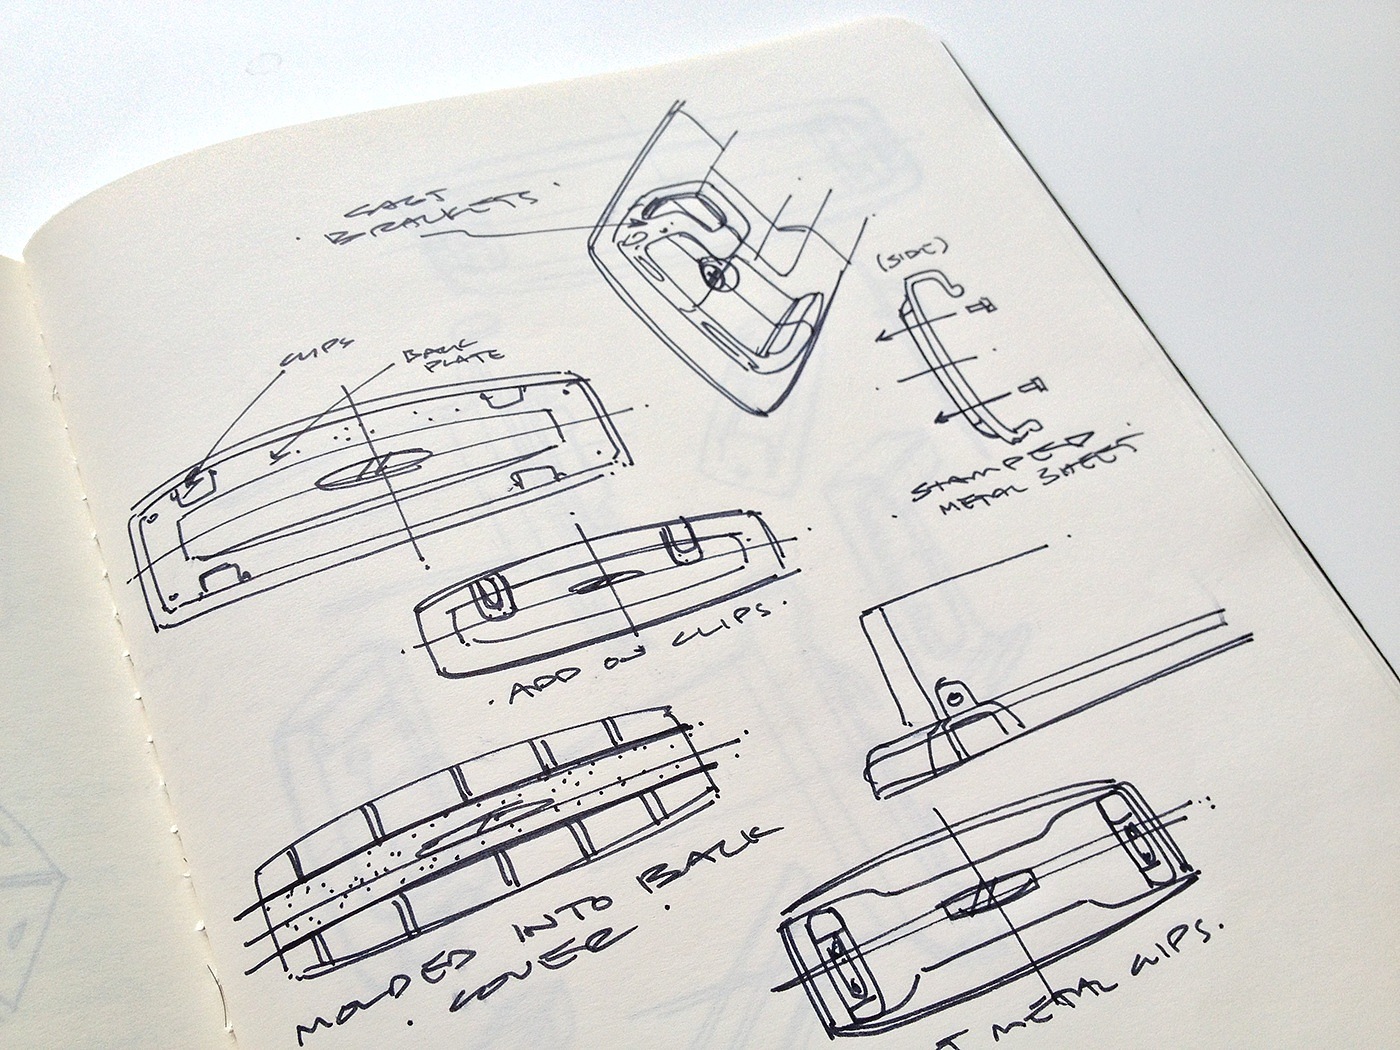 CAST
BRACKETS
(SIDE)
CLIPS
BACK
PLATE
STAMPED
METAL SHEET
ADD ON CLIPS.
MOLDED INTO BACK
COVER
T METAL CLIPS.